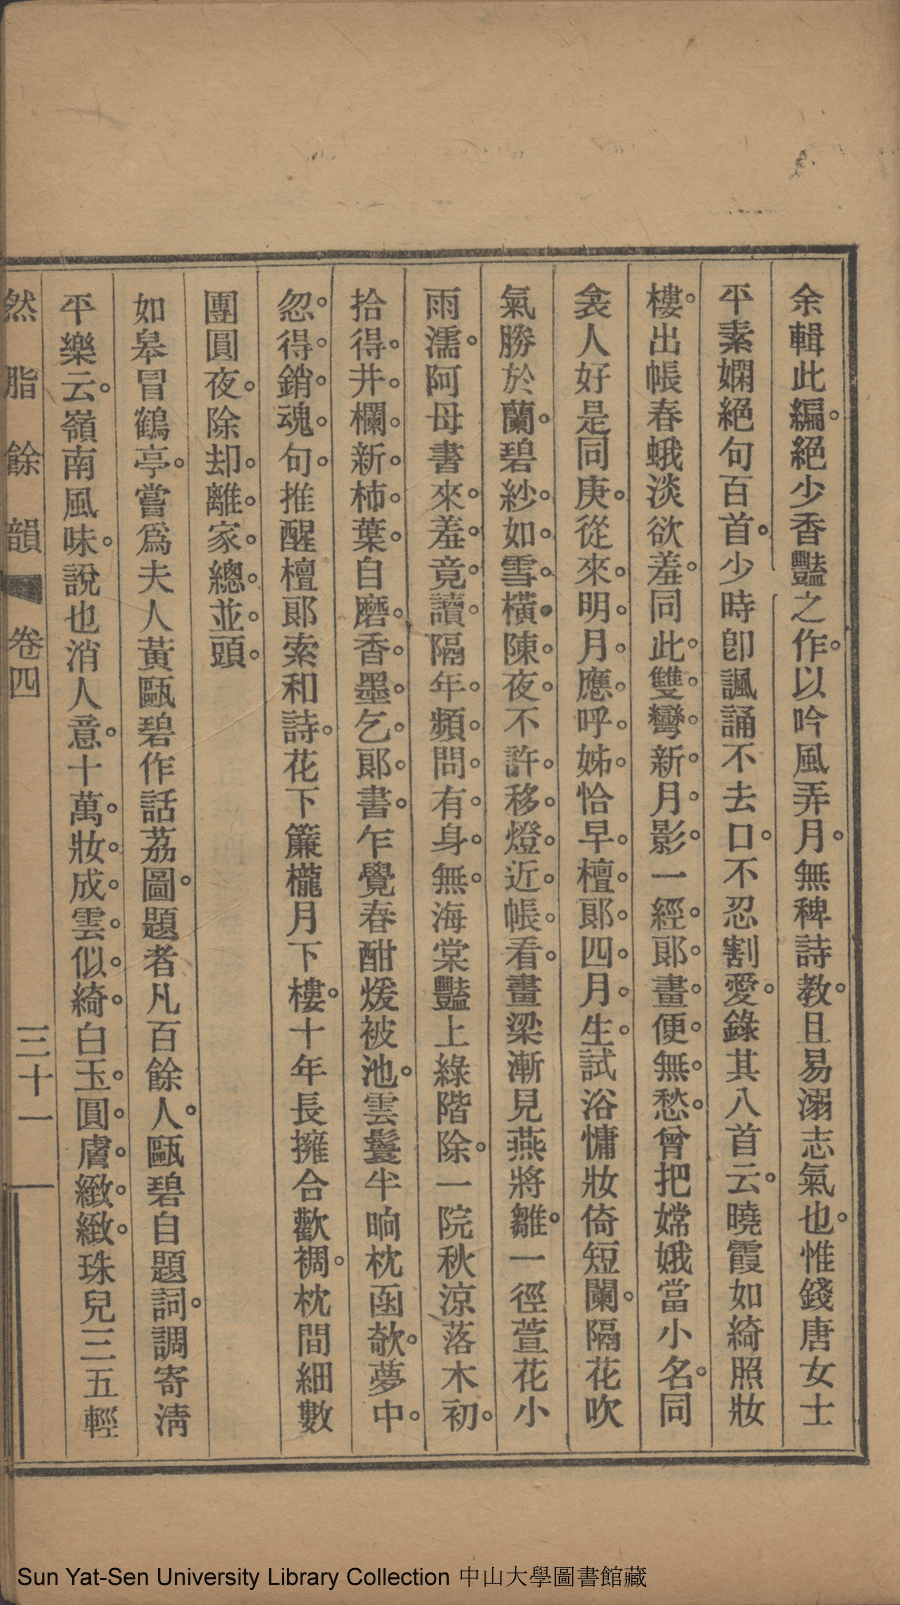 余輯此編。絕少香豔之作。以吟風弄月。無稗詩教。且易溺志氣也。惟錢唐女士
平素嫻絕句百首。少時卽諷誦不去口。不忍割愛。錄其八首云。曉霞如綺照妝
樓。出帳春蛾淡欲羞。同此雙彎新月影。一經郞畫便無愁。曾把嫦娥當小名。同
衾人好是同庚。從來明月應呼姊。恰早檀郞四月生。試浴慵妝倚短闌。隔花吹
氣勝於蘭。碧紗如雪橫陳夜。不許移燈近帳看。畫梁漸見燕將雛。一徑萱花小
雨濡。阿母書來羞竟讀。隔年頻問有身無。海棠豔上綠階除。一院秋涼落木初。
拾得井欄新柿葉。自磨香墨乞郞書。乍覺春酣煖被池。雲鬟半晌枕函欹。夢中
忽得銷魂句。推醒檀郞索和詩。花下簾櫳月下樓。十年長擁合歡裯。枕間細數
團圓夜。除却離家總並頭。
如皋冒鶴亭。嘗爲夫人黃甌碧作話荔圖。題者凡百餘人。甌碧自題詞。調寄淸
平樂云。嶺南風味。說也消人意。十萬妝成雲似綺。白玉圓膚緻緻。珠兒三五輕
然脂餘韻 卷四 三十一
Sun Yat-Sen University Library Collection 中山大學圖書館藏